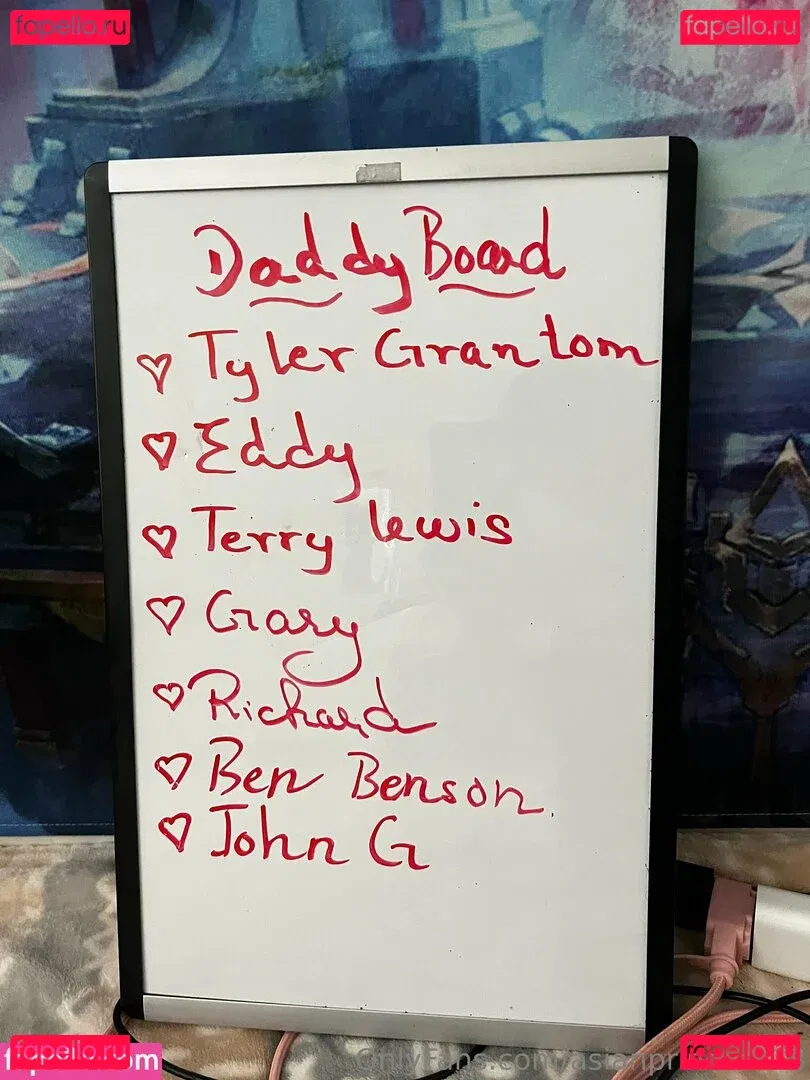 fapello.ru fapello.ru
Daddy Board
Tyler Grantom
Eddy
Terry lewis
Gary
Richard
Ben Benson.
John G
fapello.ru fapello.ru